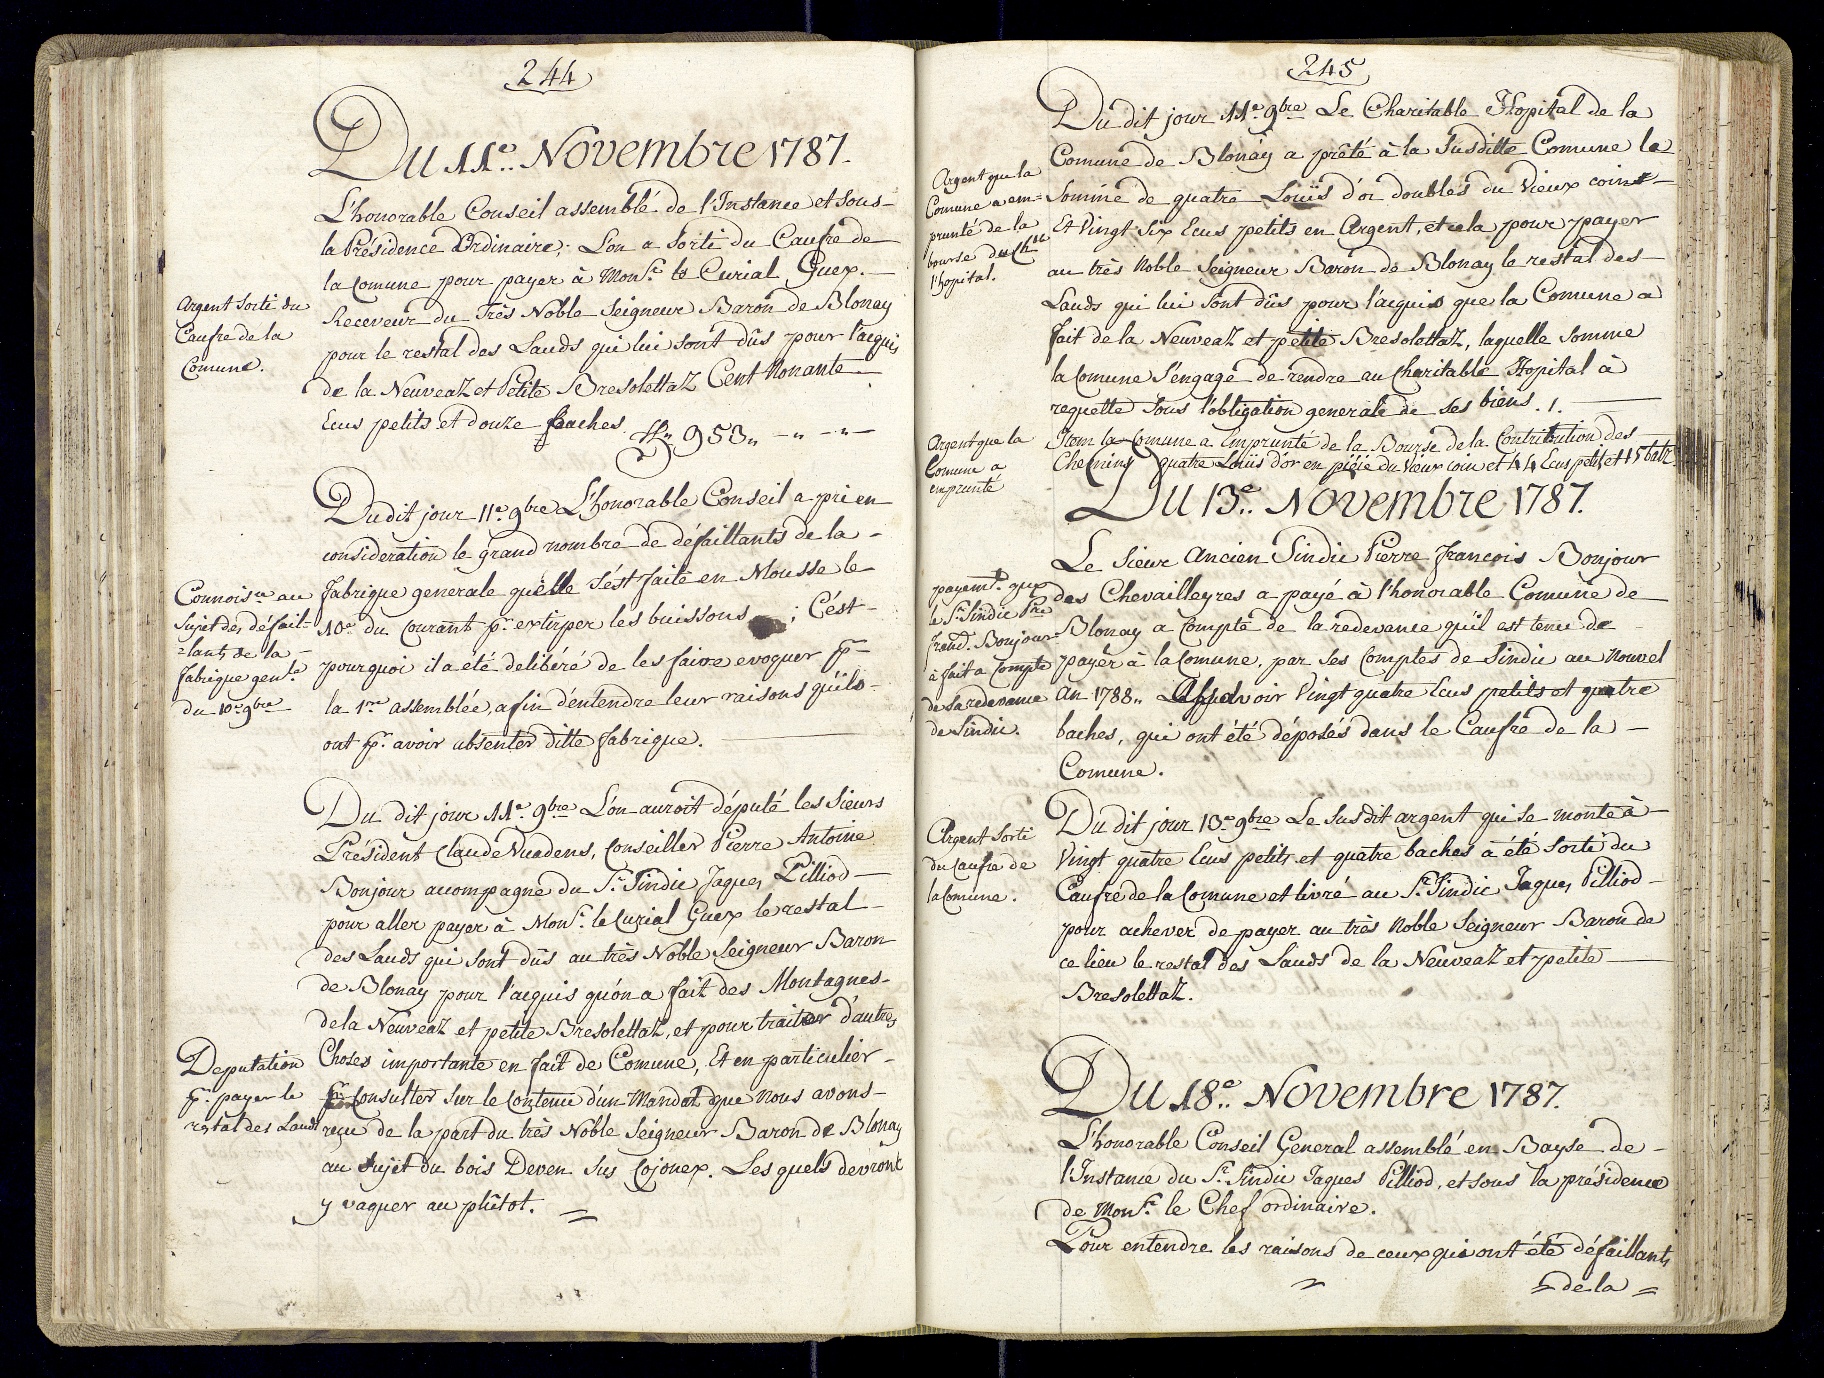 244
Du 11e.. Novembre 1787.
L'honorable Conseil assemblé de l'Instance et sous
la Présidence Ordinaire; L'on a sorti du Caufre de
la Comune pour payer à Monsr. le Curial Guex.
Argent sorti du
Caufre de la
Comune.
Receveur du Très Noble Seigneur Baron de Blonay
pour le restal des Lauds qui lui sont dûs pour l'acquis
de la Neuveaz et Petite Bresolettaz Cent Nonante
Ecus petits et douze baches. ff„ 953„ -„ -„-
Du dit jour 11e. 9bre L'honorable Conseil a pri en
consideration le grand nombre de défaillants de la
Connoisce au
sujet des défail=
=lants de la
fabrique genle.
du 10e 9bre
fabrique generale qu'elle s'est faite en Mousse le
10e du Courant pr. extirper les buissons ; C'est
pourquoi il a eté delibéré de les faire evoquer pr
la 1re assemblée, afin d'entendre leur raisons qu'ils
ont pr. avoir absenter ditte fabrique.
Du dit jour 11e. 9bre L'on auroit député les Sieurs
Président Claude Vuadens, Conseiller Pierre Antoine
Bonjour accompagné du Sr. Sindic Jaques Pilliod
pour aller payer à Monsr. le Curial Guex le restal
des Lauds qui sont dûs au très Noble Seigneur Baron
de Blonay pour l'acquis qu'on a fait des Montagnes
de la Neuveaz et petite Bresolettaz, et pour traiter d'autres
Deputation
pr. payer le
restal des Lauds
Choses importante en fait de Comune, Et en particulier
pr Consulter sur le Contenu d'un Mandat que nous avons
reçu de la part du très Noble Seigneur Baron de Blonay
au Sujet du bois Deven sus Cojonex. Les quels devront
y vaquer au plûtot.
245
Du dit jour 11e. 9bre Le Charitable Hopital de la
Comune de Blonay a prêté à la Susditte Comune la
Argent que la
Comune a em=
prunté de la
bourse du Chle
l'hopital.
Somme de quatre Louis d'or doubles du Vieux coint
Et Vingt Six Ecus petits en Argent, et cela pour payer
au très Noble Seigneur Baron de Blonay le restal des
Lauds qui lui sont dûs pour l'acquis que la Comune a
fait de la Neuveaz et petite Bresolettaz, laquelle Somme
la Comune s'engage de rendre au Charitable Hopital à
requette sous l'obligation generale de ses biens. 1.
Argent que la
Comune a
emprunté
Item la Comune a Emprunté de la Bourse de la Contribution des
Chemins quatre Louis d'or en piéce du Vieux coin et 44 Ecus petits et 15 batz
Du 13e.. Novembre 1787.
Le Sieur Ancien Sindic Pierre François Bonjour
payemt. que
le Sr. Sindic Pre
franc. Bonjour
à fait a Compte
de sa redevance
de Sindic.
des Chevailleyres a payé à l'honorable Comune de
Blonay a Compte de la redevance qu'il est tenu de
payer à la Comune, par ses Comptes de Sindic au Nouvel
An 1788„ Assavoir Vingt quatre Ecus petits et quatre
baches, qui ont été déposés dans le Caufre de la
Comune.
Argent Sorti
du Caufre de
la Comune.
Du dit jour 13e 9bre Le susdit argent qui se monte à
Vingt quatre Ecus petits et quatre baches à été Sorti du
Caufre de la Comune et livré au Sr. Sindic Jaques Pilliod
pour achever de payer au très Noble Seigneur Baron de
ce lieu le restal des Lauds de la Neuveaz et petite
Bresolettaz.
Du 18e.. Novembre 1787.
L'honorable Conseil General assemblé en Bayse de
l'Instance du Sr. Sindic Jaques Pilliod, et sous la présidence
de Monsr. le Chef ordinaire.
Pour entendre les raisons de ceux qui ont été défaillants
= de la =